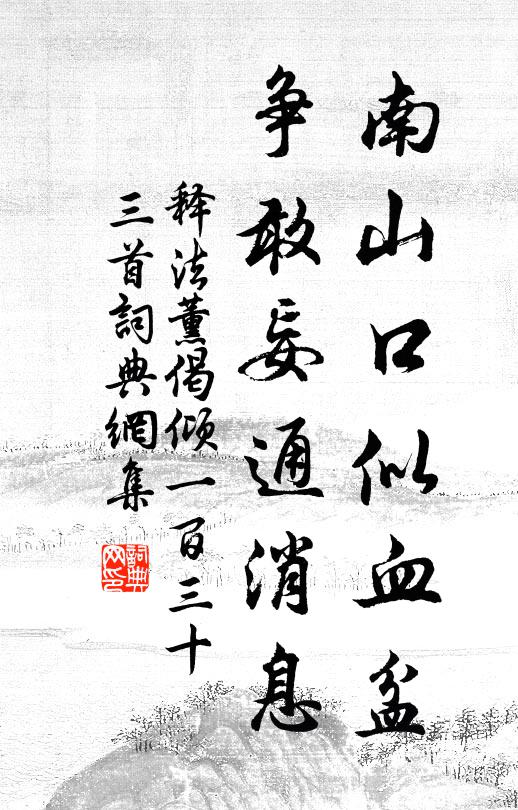 南山口似血盆
争敢妄通消息
释法薰偈倾一百三十
三首詞典網集
詞典網印